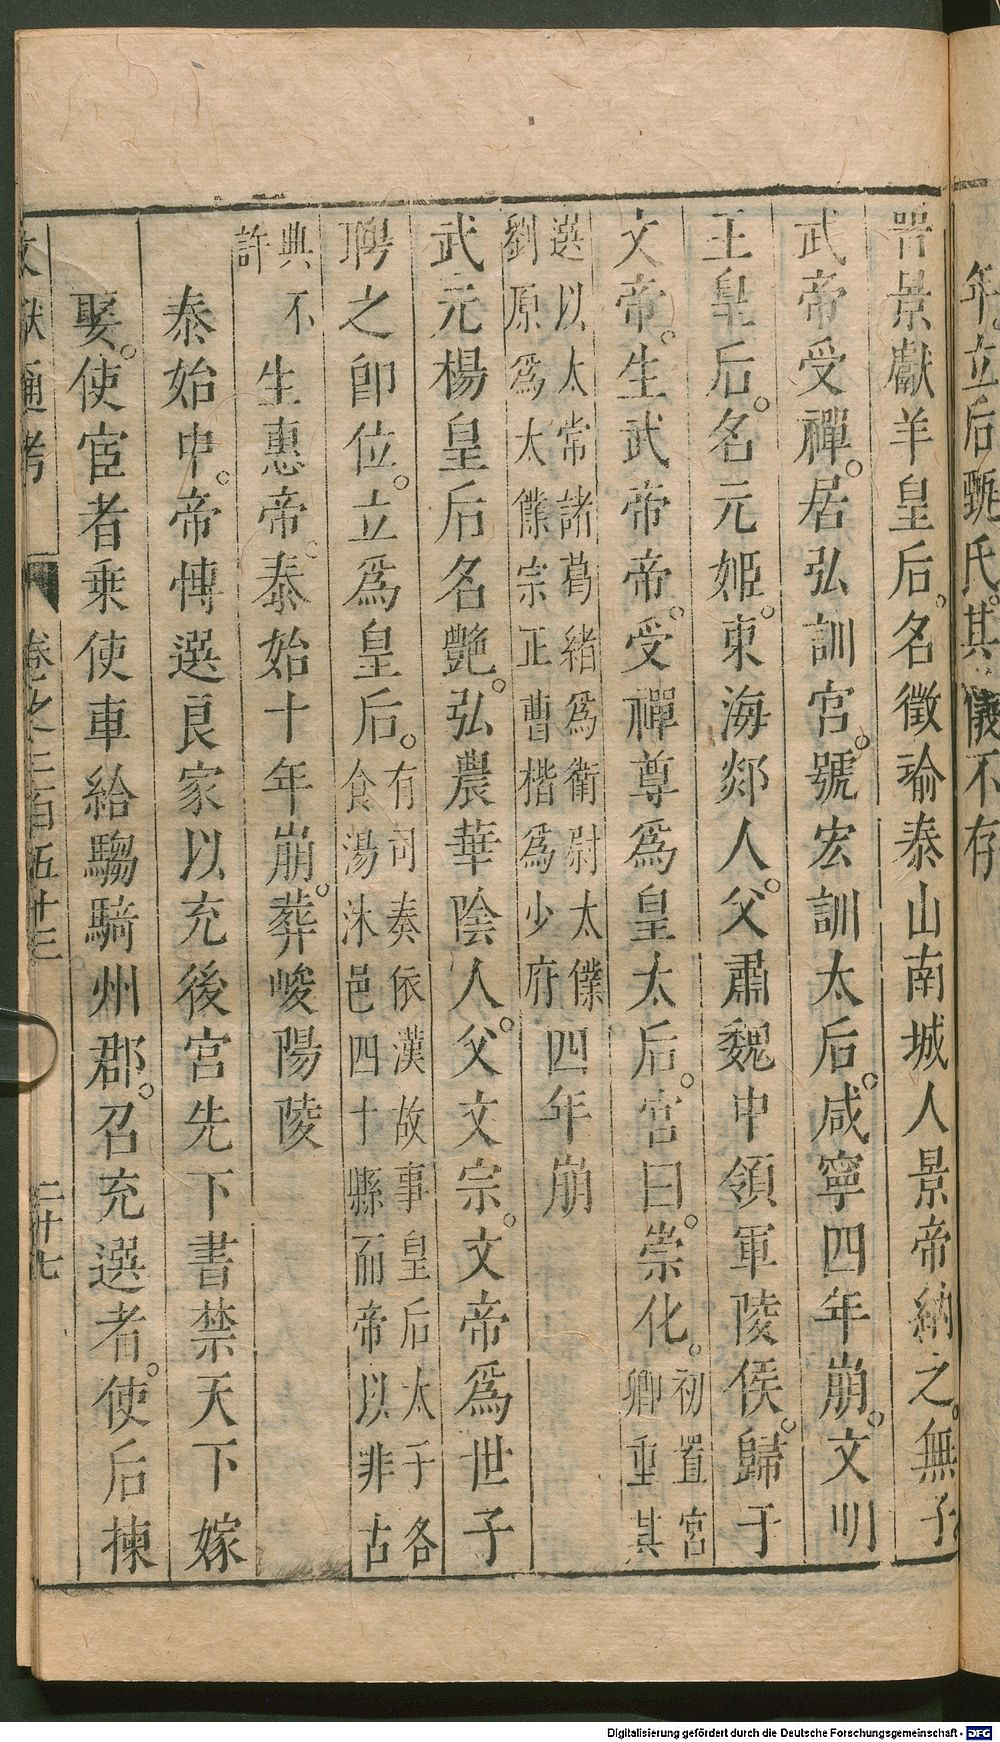 年。立后甄氏。其儀不存
晉景獻羊皇后。名徽瑜泰山南城人景帝納之。無子
武帝受禪。居弘訓宮。號宏訓太后。咸寧四年崩。文明
王皇后。名元姬。東海郯人。父肅魏中領軍陵侯。歸于
文帝。生武帝帝。受禪尊為皇太后。宮曰。崇化。初置宮
卿重其
選以太常諸葛緒為衛尉太僕
劉原為太僕宗正曹楷為少府四年崩
武元楊皇后名艷。弘農華陰人。父文宗。文帝為世子
聘之即位。立為皇后。有司奏依漢故事皇后太子各
食湯沐邑四十縣而帝以非古
典不
許生惠帝。泰始十年崩。葬峻陽陵
泰始中。帝博選良家以充後宮先下書禁天下嫁
娶。使宦者乗使車給騶騎州郡。召充選者。使后揀
文獻通考
卷之三百五十三
二十七
Digitalisierung gefördert durch die Deutsche Forschungsgemeinschaft - DFG